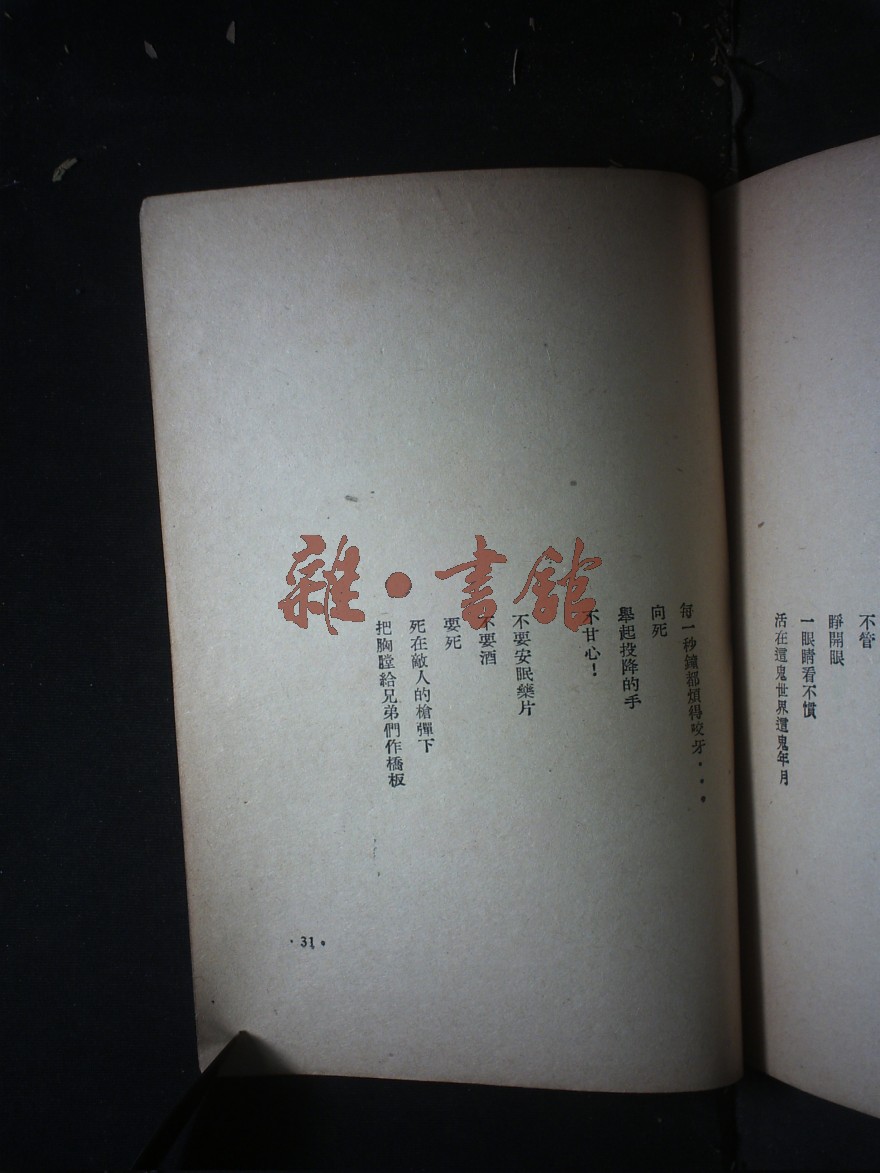 不管
睜開眼
一眼睛看不慣
活在這鬼世界這鬼年月
每一秒鐘都煩得咬牙...
向死
舉起投降的手
不甘心！
不要安眠藥片
不要酒
要死
死在敵人的槍彈下
把胸膛給兄弟們作橋板
·31·
雜·書館